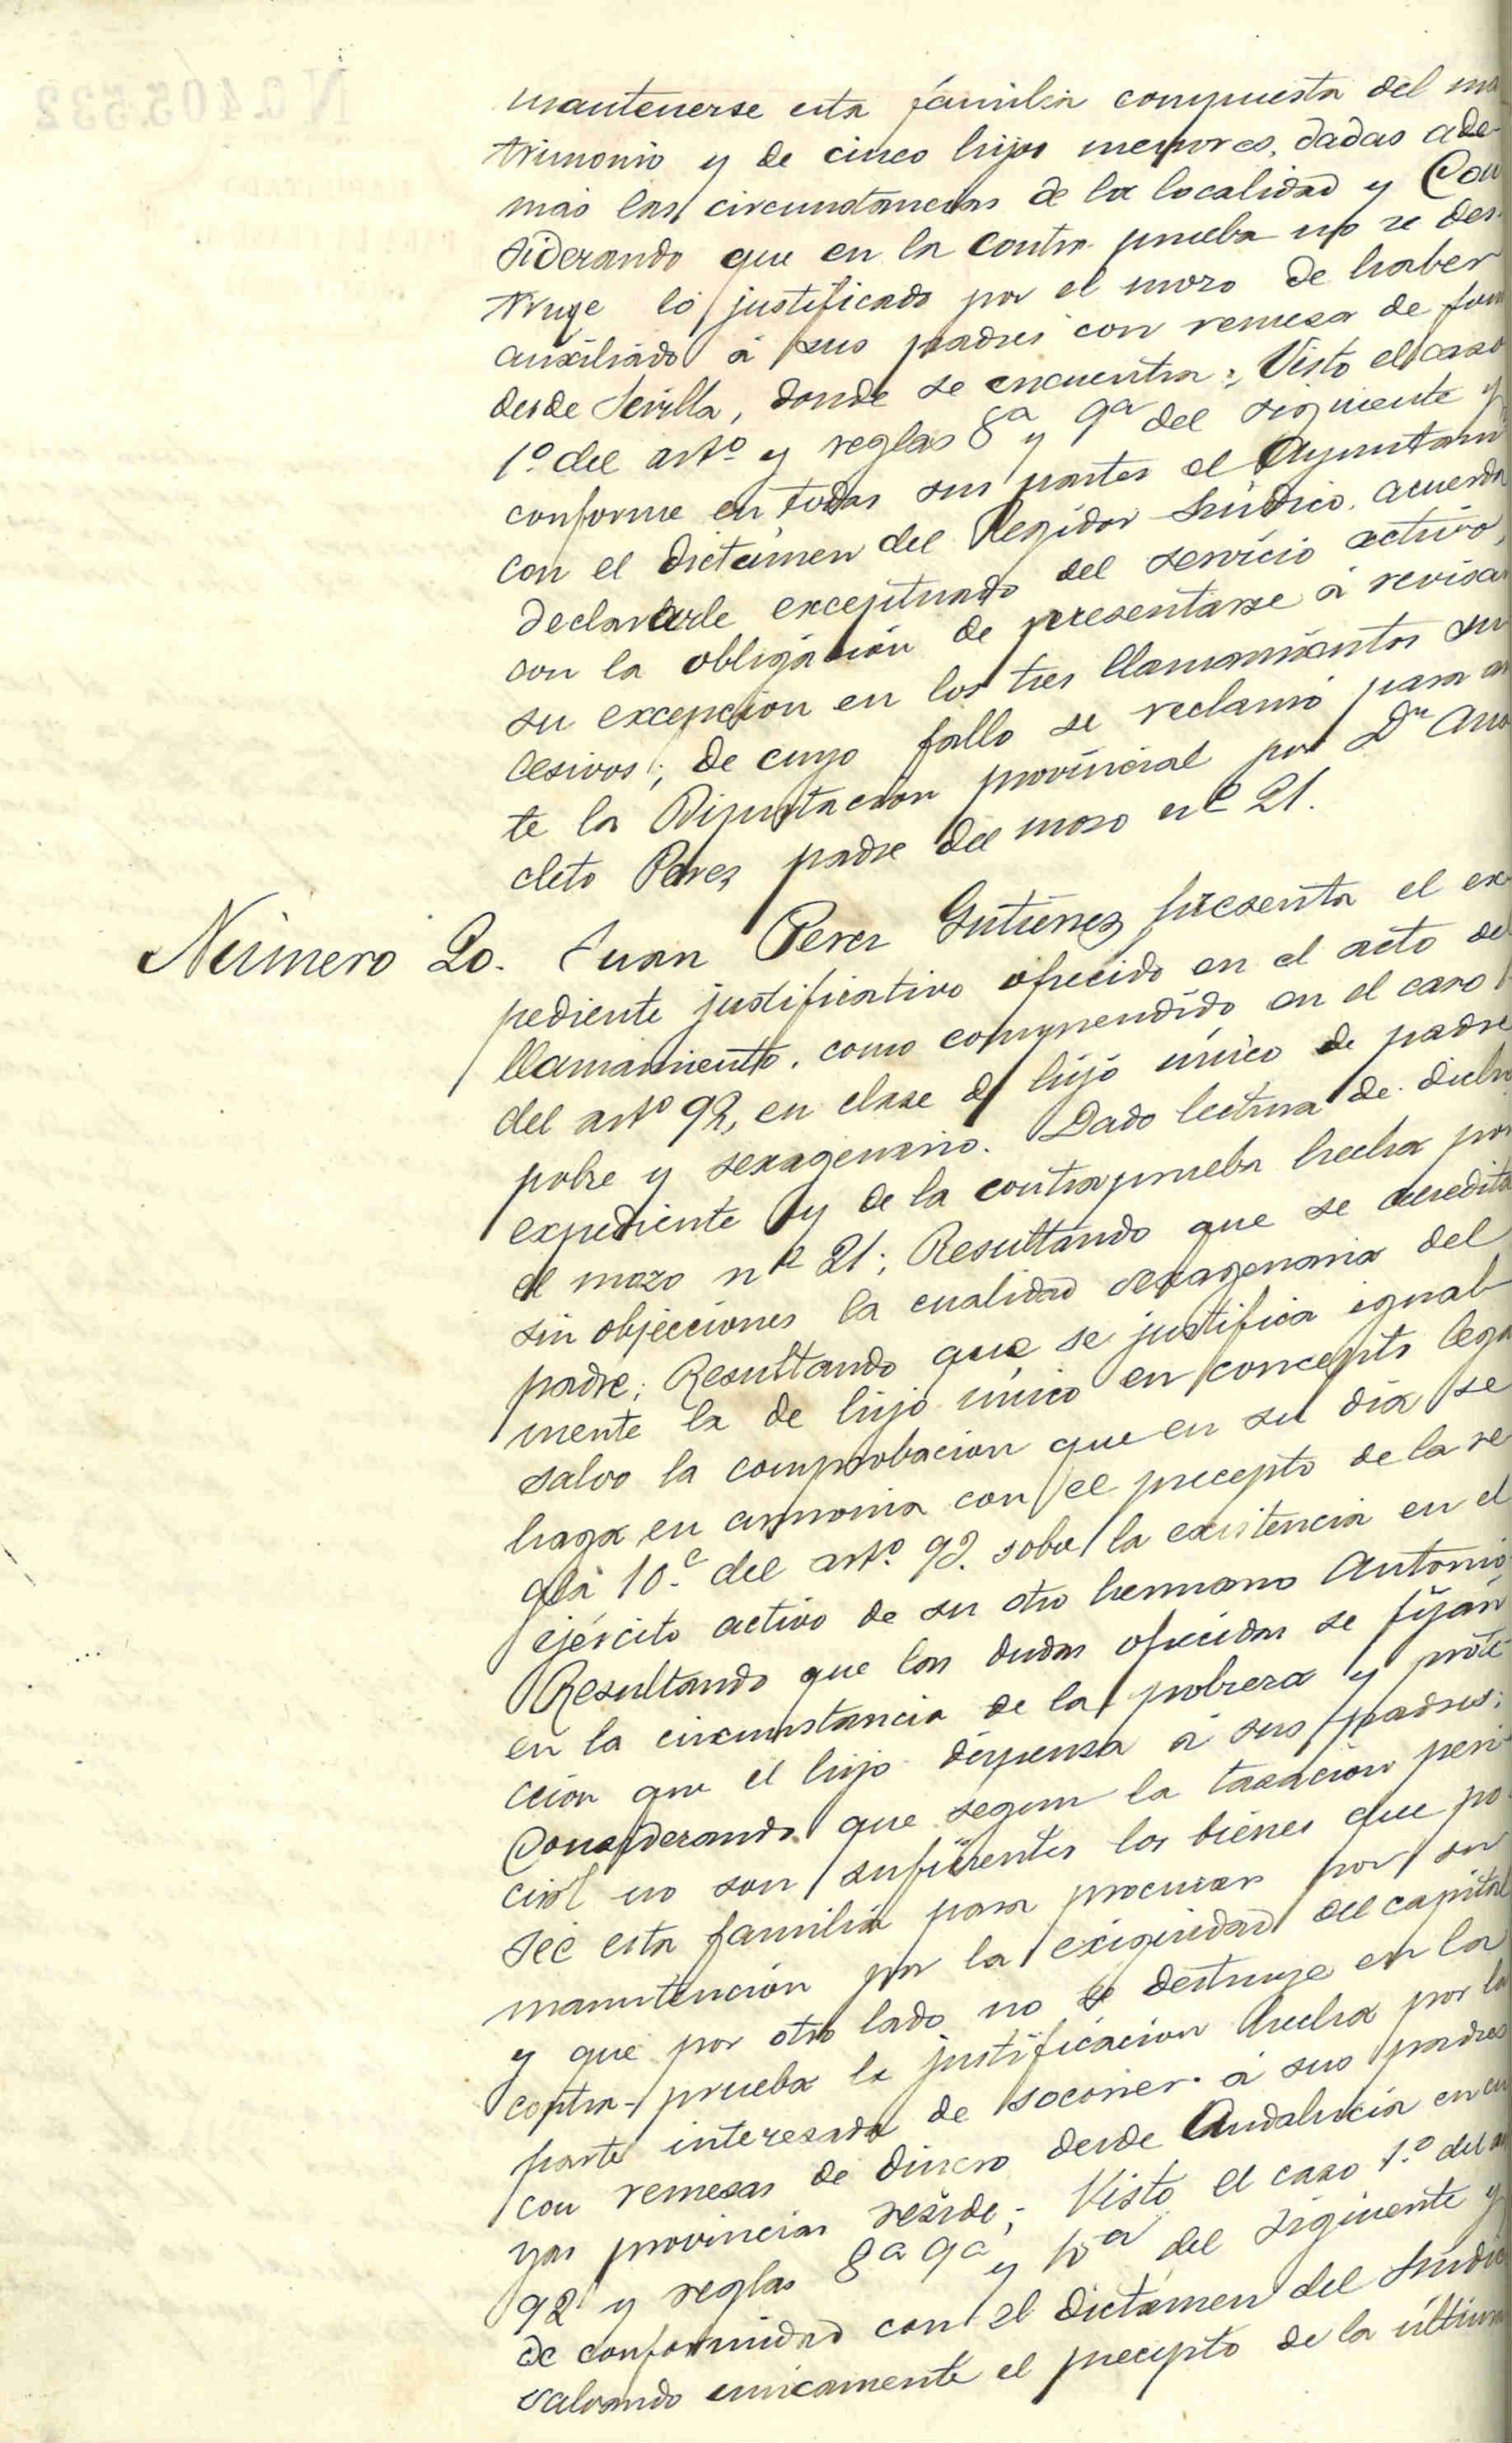 N0.405.532
mantenerse esta familia compuesta del ma
trimonio y de cinco hijos menores, dadas ade-
mas las circunstancias de la localidad y Con
siderando que en la contra-prueba no se des-
truye lo justificado por el mozo de haber
auxiliado á sus padres con remesa de fon
desde Sevilla, donde se encuentra; Visto el caso
1.º del artº y reglas 8ª y 9ª del siguiente y
conforme en todas sus partes el Ayuntami
con el dictámen del Regidor Síndico, acuerda
declararle exceptuado del servicio activo,
con la obligación de presentarse á revisar
su excepcion en los tres llamamientos su
cesivos; de cuyo fallo se reclamó para an
te la Diputacion provincial por Dn Ana
cleto Perez padre del mozo nº 21.
Número 20. Juan Perez Gutierrez presenta el ex-
pediente justificativo ofrecido en el acto del
llamamiento, como comprendido en el caso 1
del artº 92, en clase de hijo único de padre
pobre y sexagenario. Dado lectura de dicho
expediente y de la contraprueba hecha por
el mozo nº 21; Resultando que se acredita
sin objecciones la cualidad sexagenaria del
padre; Resultando que se justifica igual-
mente la de hijo único en concepto lega
salvo la comprobacion que en su dia se
haga en armonia con el precepto de la re
gla 10.ª del artº. 93. sobre la existencia en el
ejército activo de su otro hermano Antonio
Resultando que las dudas ofrecidas se fijan
en la circunstancia de la pobreza y prote
ccion que el hijo dispensa á sus padres;
Considerando que segun la tasacion peri-
cial no son suficientes los bienes que po-
see esta familia para procurar por su
manutencion por la exigüidad del capital
y que por otro lado no se destruye en la
contra-prueba la justificacion hecha por la
parte interesada de socorrer á sus padres
con remesas de dinero desde Andalucia en cu
yas provincias reside; Visto el caso 1.º del ar
92 y reglas 8ª 9ª y 10ª del siguiente y
de conformidad con el dictámen del Síndic
salvando unicamente el precepto de la última